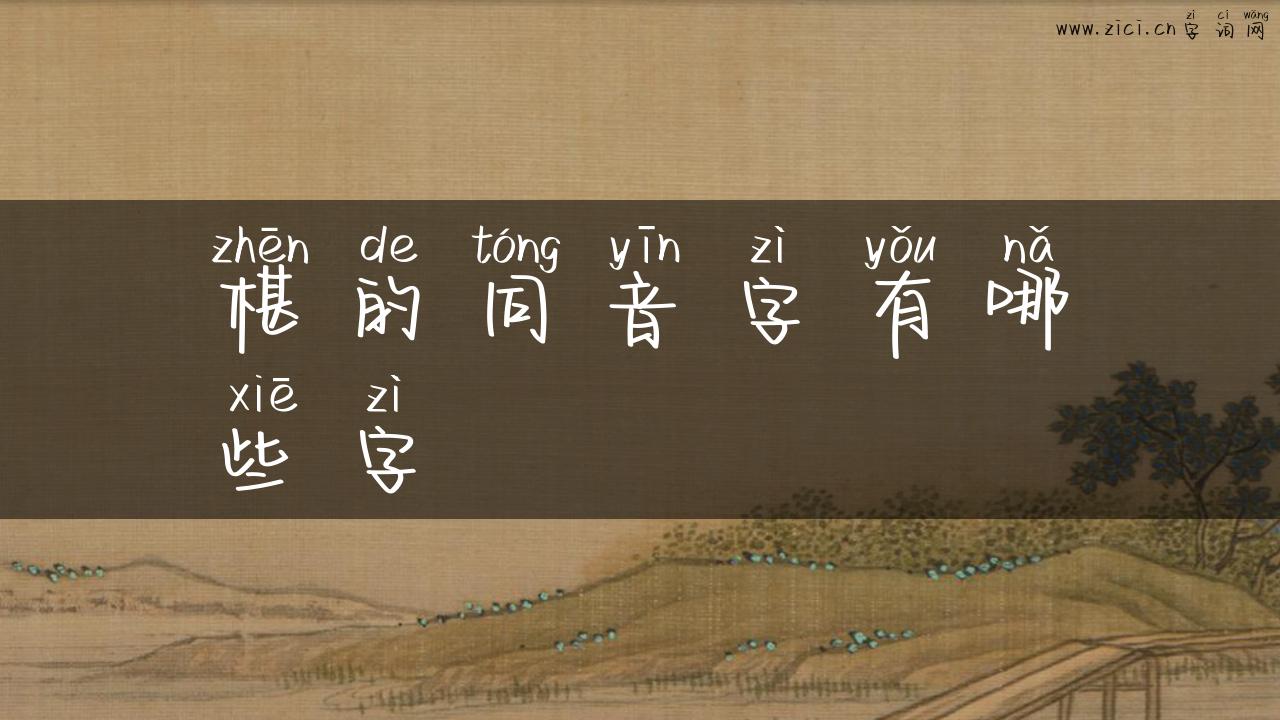 zì cí wǎng
www.zici.cn 字 词 网
zhēn de tóng yīn zì yǒu nǎ
椹 的 同 音 字 有 哪
xiē zì
些 字